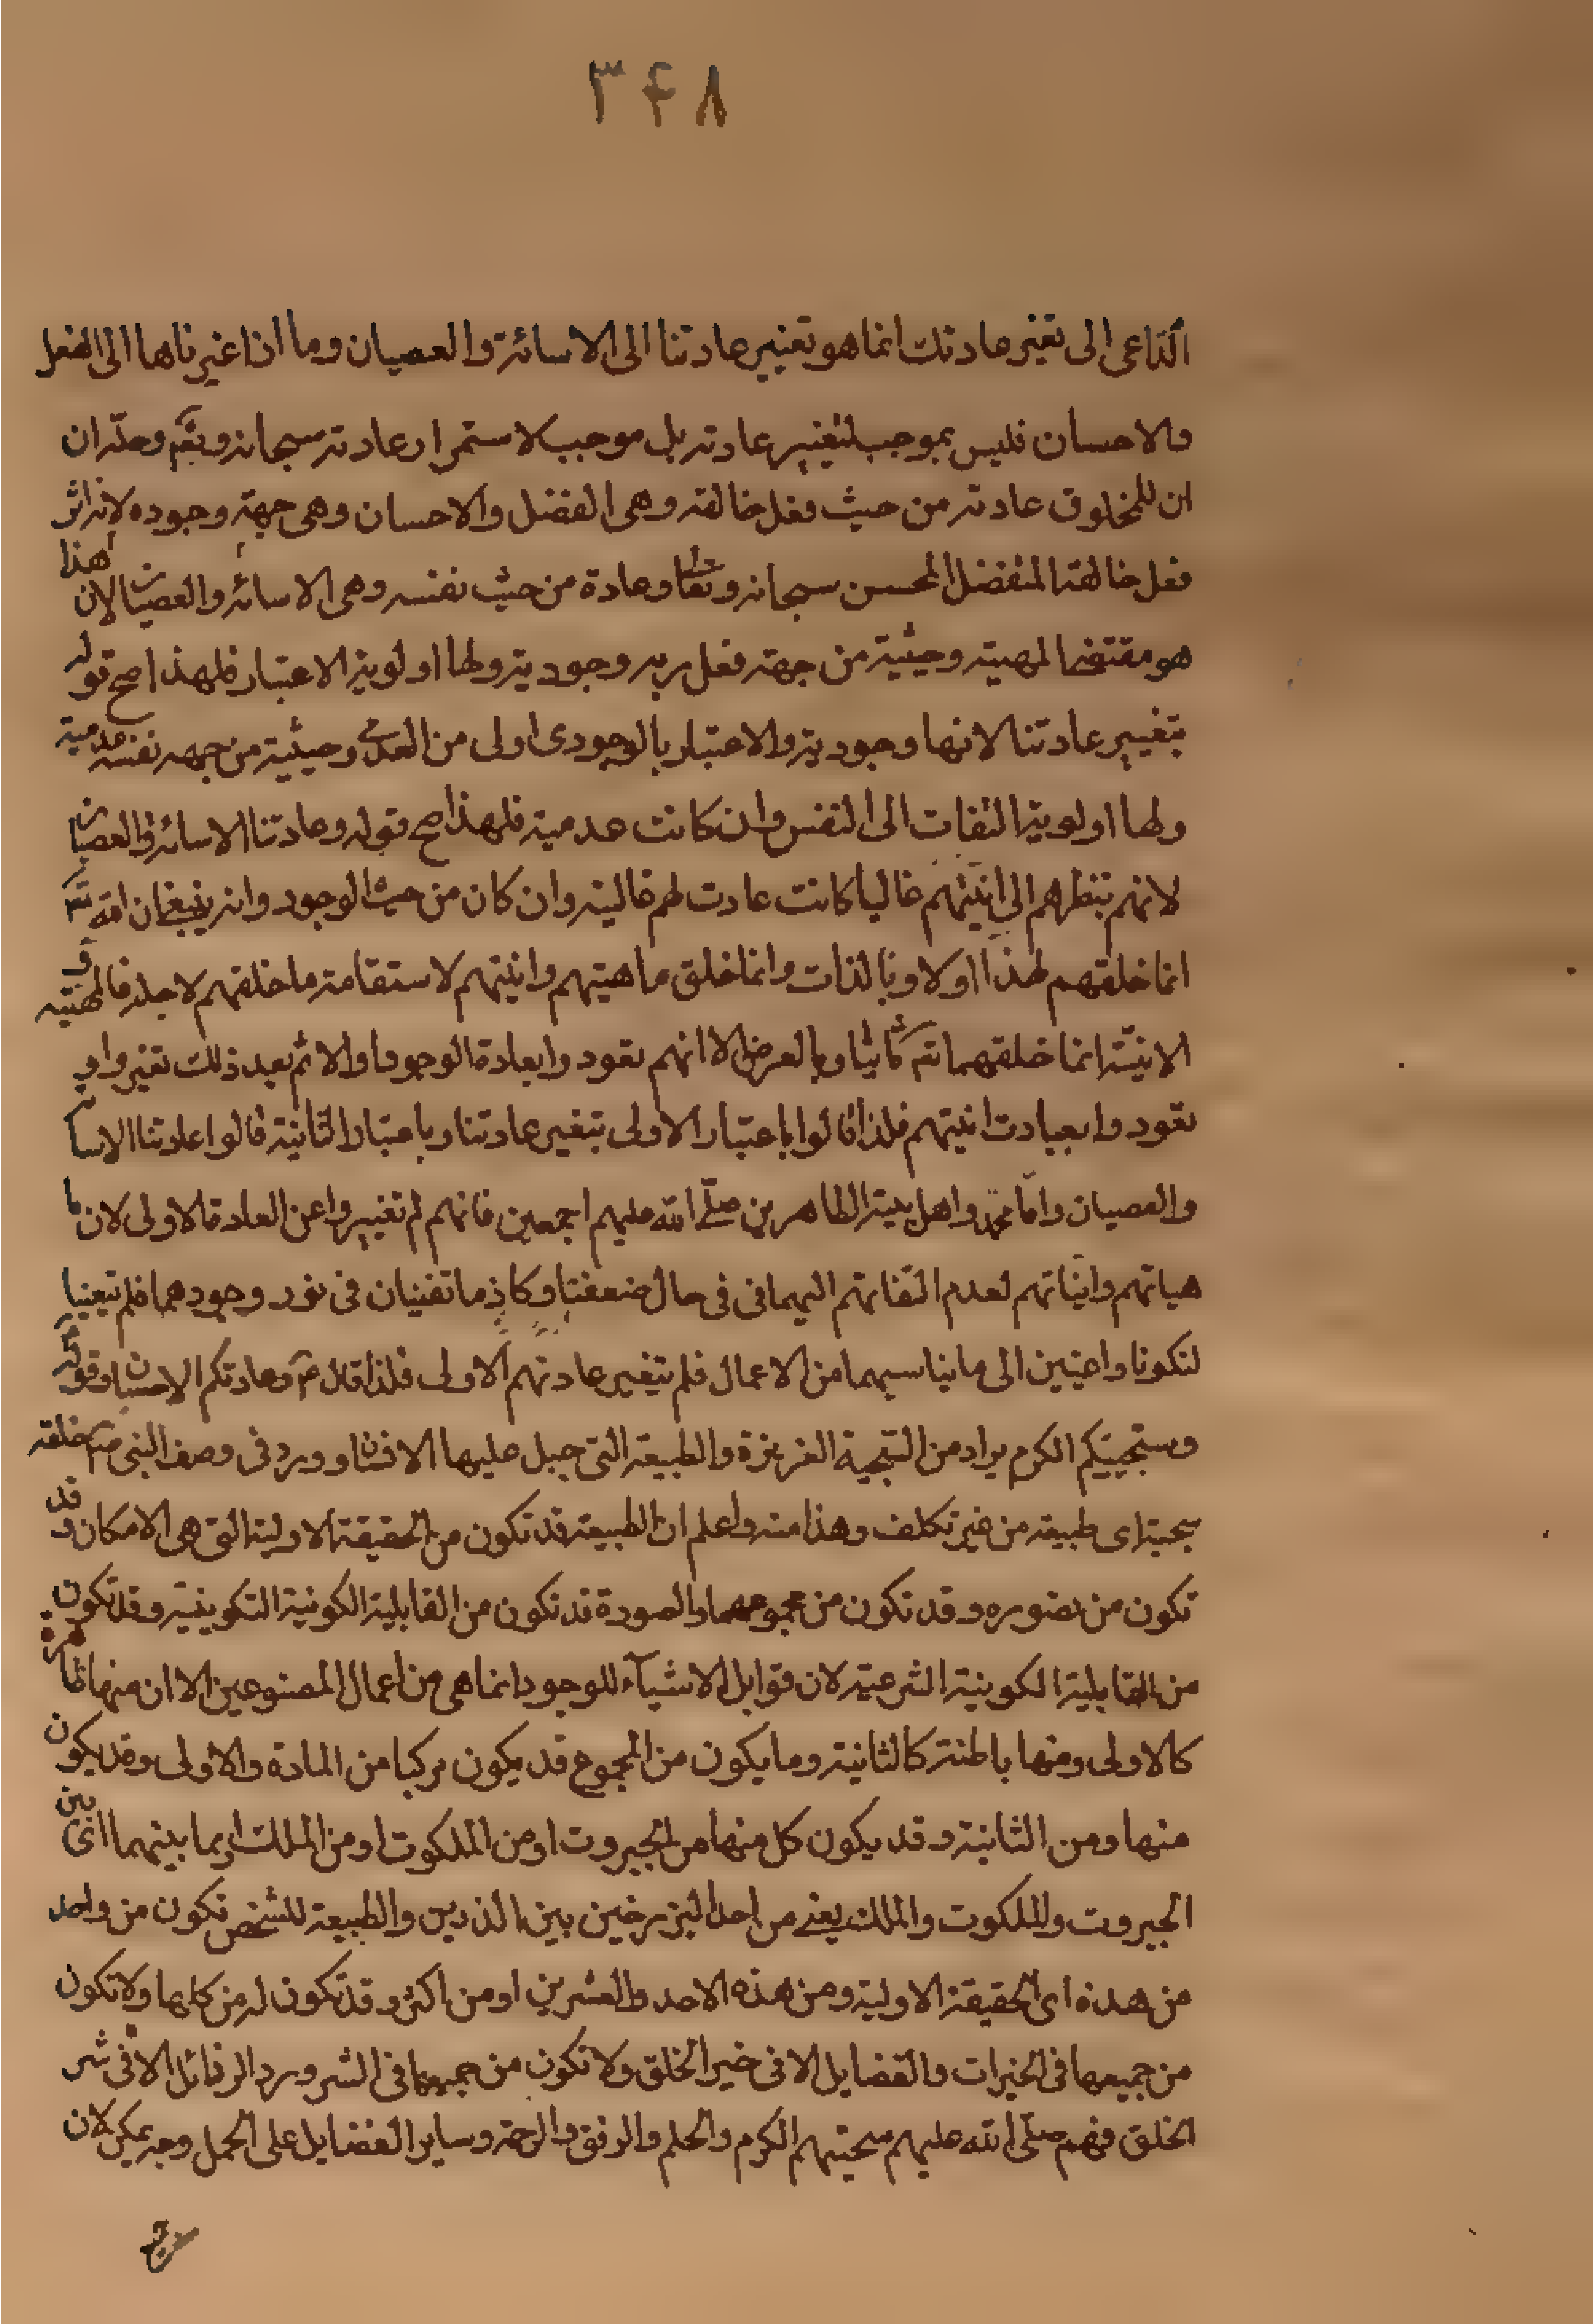 ٣۴٨
الداعى الى تغير عادتك انما هو تغيير عادتنا الى الاسائة والعصيان وما اذا غيرناها الى الفضل
والاحسان فليس بموجب لتغيير عادته بل موجب لاستمرار عادته سبحانه و ان
ان للمخلوق عادته من حيث فعل خالقه وهى الفضل والاحسان وهى جهة وجوده لانه اثر
فعل خالقه المتفضل المحسن سبحانه وتعالى وعادة من حيث نفسه وهى الاسائة والعصيان لان هذا
هو مقتضى المهية وحيثية من جهة فعل ربه وجودية ولها اولوية الاعتبار فلهذا صح قوله
بتغيير عادتنا لانها وجودية والاعتبار بالوجودى اولى من العدمى وحيثية من جهه نفسه عدمية
ولها اولوية التفات الى النفس وان كانت عدمية فلهذا صح قوله وعادتنا الاسائة والعصيان
لانهم بنظرهم الى انيتهم غالبا كانت عادت لهم غالبة وان كان من حيث الوجود وانه ينبغى ان الله تع
انما خلقهم لهذا اولا وبالذات وانما خلق ماهيتهم وانيتهم لاستقامة ما خلقهم لاجله فالمهية و
الانية انما خلقهما ثانيا وبالعرض الا انهم تعودوا بعادة الوجود اولا ثم بعد ذلك تغيروا و
تعودوا بعبادت انيتهم فلذا قالوا باعتبار الاولى بتغير عادتنا وباعتبار الثانية قالوا عادتنا الاسائة
والعصيان واما محمد واهل بيته الطاهرين صلى الله عليهم اجمعين فانهم لم تغيروا عن العادة الاولى لان ما
هياتهم وانياتهم لعدم التفاتهم اليهما فى فى حال ضعفتا وكادتا تفنيان فى نور وجودهما فلم تبعنيا
لتكونا داعيين الى ما يناسبهما من الاعمال فلم يتغير عادتهم الاولى فلذا قال م وعادتكم الاحسان وقوله
وسجيتكم الكرم يراد من السجية الغريزة والطبيعة التى جبل عليها الانسان وورد فى وصف النبى ص خلقه
سجية اى طبيعة من غير تكلف وهذا منه واعلم ان الطبيعة قد تكون من الحقيقة الاولية التى هى الامكان وقد
تكون من صوره وقد تكون من مجموعهما والصورة قد تكون من القابلية الكونية التكوينية وقد تكون
من القابلية الكونية الشرعية لان قوابل الاشياء للوجود انما هى من اعمال المصنوعين الا ان منها ظاهرة
كالاولى ومنها باطنة كالثانية وما يكون من المجموع قد يكون مركبا من المادة والاولى وقد يكون
منها ومن الثانية وقد يكون كل منها من الجبروت او من الملكوت او من الملك او بما بينهما اى بين
الجبروت والملكوت والملك يعنى من احد البرزخين بين الذين والطبيعة للشخص تكون من واحد
من هذه اى الحقيقة الاولية ومن هذه الاحد والعشرين او من اكثر وقد تكون له من كلها ولا تكون
من جميعها فى الخيرات والفضايل الا فى خير الخلق ولا تكون من جميعها فى الشرور والرذائل الا فى شر
الخلق فهم صلى الله عليهم سجيتهم الكرم والحلم والرفق والرحمة وساير الفضايل على اكمل وجه يمكن لان